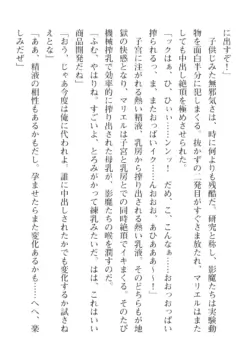 に出すぞ！」
　子供じみた無邪気さは、時に何よりも残酷だ。研究と称し、影魔たちは実験動
物を面白半分に犯しまくる。程なく
ても中出し絶頂を極めさせられながら、
「ックはぁ、ひぃ……ンンッ！　だめ、こ、こんなぁ～……おおっおっぱい
搾られるぅ、ま、またおっぱいイク……んおおお、あひあああ～～！」
　子宮に注がれる熱い精液、乳房から搾り出される熱い乳液。そのどちらもが地
獄の快感となり、マリエルは子宮と乳房とで同時絶頂でイキまくる。そのたび
機械搾乳で搾り出された母乳が、影魔たちの喉を潤すのだ。
「ふむ、やはりね。すごいよ、とろみがかって練乳みたいだ。はは、これはいい
商品開発だね」
「おう、じゃあ今度は俺に代われよ。誰に中出しされたかでも変化するか試さね
えとな」
「ああ、精液の相性もあるかもだし、孕ませたらまた変化あるかも……へへ、楽
しみだぜ」